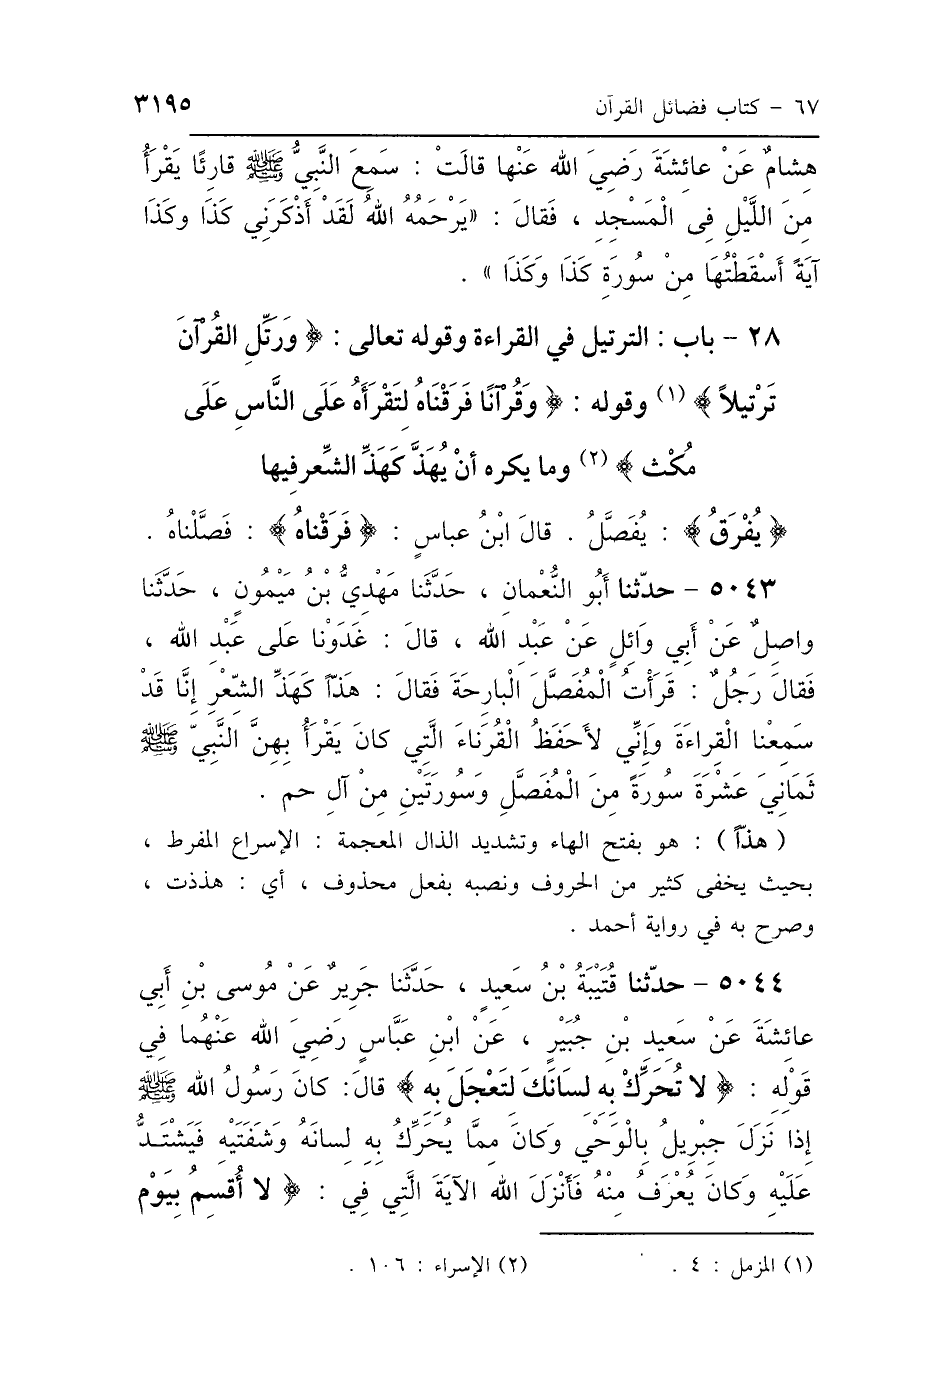 ٦٧ - كتاب فضائل القرآن ٣١٩٥
هِشامٌ عَنْ عائِشَةَ رَضِيَ الله عَنْها قالَتْ : سَمِعَ النَّبِيُّ ﷺ قارِئًا يَقْرَأُ
مِنَ اللَّيْلِ فِي الْمَسْجِدِ ، فَقالَ : «يَرْحَمُهُ اللهُ لَقَدْ أَذْكَرَنِي كَذَا وكَذَا
آيَةً أَسْقَطْتُهَا مِنْ سُورَةِ كَذَا وَكَذَا » .
٢٨ - باب : الترتيل في القراءة وقوله تعالى : ﴿ وَرَتِّلِ القُرْآنَ
تَرْتِيلاً ﴾ (١) وقوله : ﴿ وَقُرْآنًا فَرَقْنَاهُ لِتَقْرَأَهُ عَلَى النَّاسِ عَلَى
مُكْث ﴾ (٢) وما يكره أنْ يُهَذَّ كَهَذِّ الشِّعرِ فيها
﴿ يُفْرَقُ ﴾ : يُفَصَّلُ . قالَ ابْنُ عباسٍ : ﴿ فَرَقْناهُ ﴾ : فَصَّلْناهُ .
٥٠٤٣ - حدّثنا أَبُو النُّعْمانِ ، حَدَّثَنا مَهْدِيُّ بْنُ مَيْمُونٍ ، حَدَّثَنا
واصِلٌ عَنْ أَبِي وَائِلٍ عَنْ عَبْدِ الله ، قالَ : غَدَوْنا عَلى عَبْدِ الله ،
فَقالَ رَجُلٌ : قَرَأْتُ الْمُفَصَّلَ الْبارِحَةَ فَقالَ : هَذّاً كَهَذِّ الشِّعْرِ إنَّا قَدْ
سَمِعْنا الْقِراءَةَ وَإِنِّي لأَحْفَظُ الْقُرَناءَ الَّتِي كانَ يَقْرَأُ بِهِنَّ النَّبِيّ ﷺ
ثَمَانِيَ عَشْرَةَ سُورَةً مِنَ الْمُفَصَّلِ وَسُورَتَيْنِ مِنْ آلِ حم .
( هذّاً ) : هو بفتح الهاء وتشديد الذال المعجمة : الإسراع المفرط ،
بحيث يخفى كثير من الحروف ونصبه بفعل محذوف ، أي : هذذت ،
وصرح به في رواية أحمد .
٥٠٤٤ - حدّثنا قُتَيْبَةُ بْنُ سَعِيدٍ ، حَدَّثَنا جَرِيرٌ عَنْ مُوسى بْنِ أَبِي
عائِشَةَ عَنْ سَعِيدِ بْنِ جُبَيْرٍ ، عَنْ ابْنِ عَبَّاسٍ رَضِيَ الله عَنْهُما فِي
قَوْلِهِ : ﴿ لا تُحَرِّكْ بِهِ لِسَانَكَ لِتَعْجَلَ بِهِ ﴾ قالَ: كانَ رَسُولُ الله ﷺ
إذا نَزَلَ جِبْرِيلُ بِالْوَحْيِ وَكانَ مِمَّا يُحَرِّكُ بِهِ لِسانَهُ وَشَفَتَيْهِ فَيَشْتَدُّ
عَلَيْهِ وَكانَ يُعْرَفُ مِنْهُ فَأَنْزَلَ الله الآيَةَ الَّتِي فِي : ﴿ لا أُقْسِمُ بِيَوْمِ
(١) المزمل : ٤ . (٢) الإسراء : ١٠٦ .